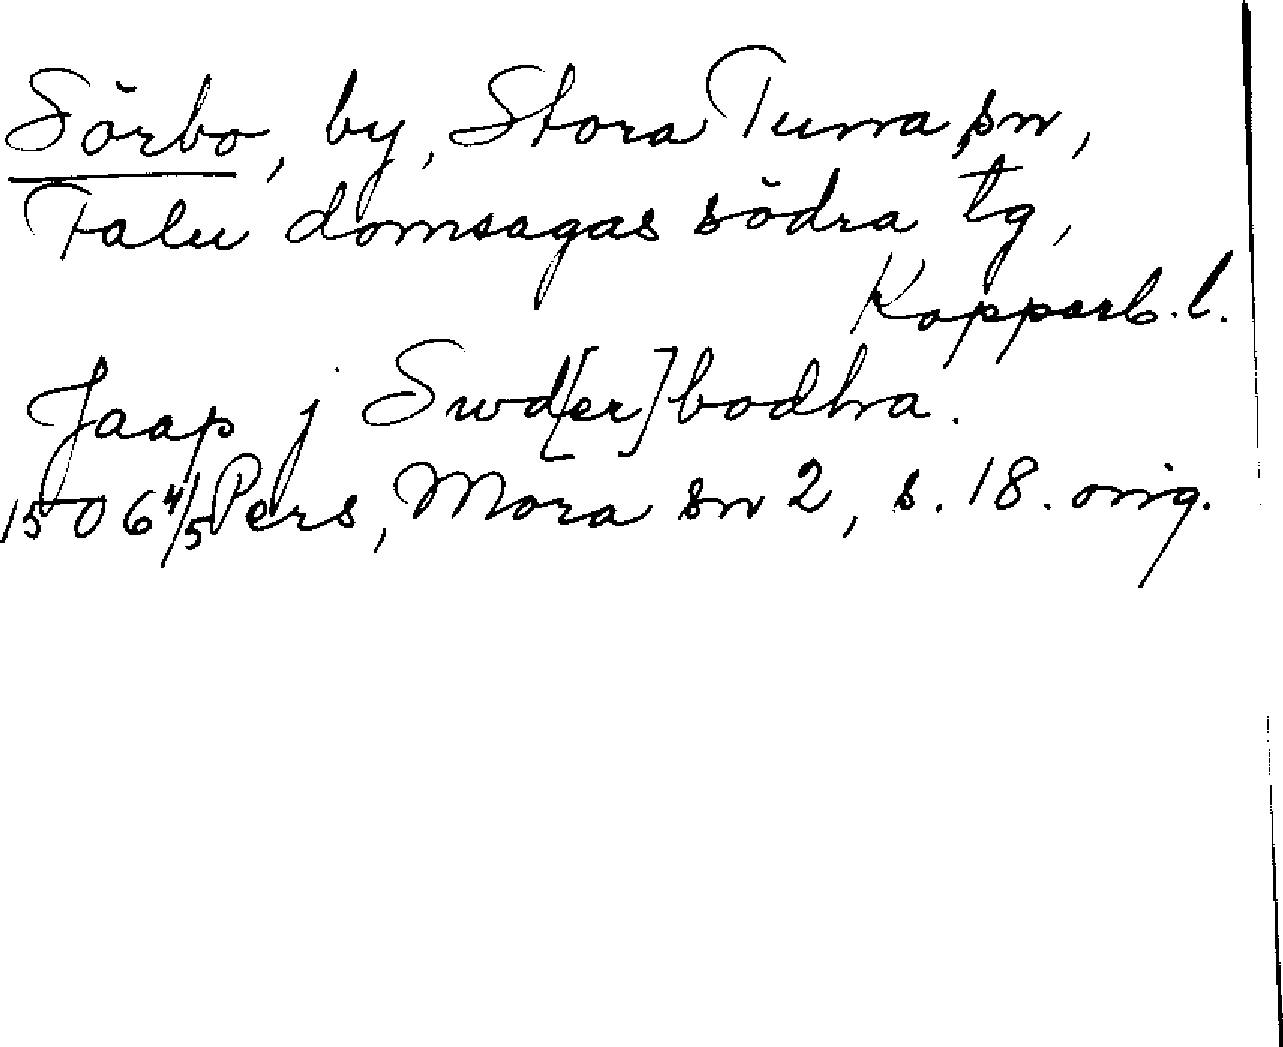 Sörbo, by, Stora Tuna sn,
Falu domsagas södra tg,
Kopparb. l.
Jaap j Swd[er]bodha.
1506 4/5 Pers, Mora sn 2, s. 18. orig.